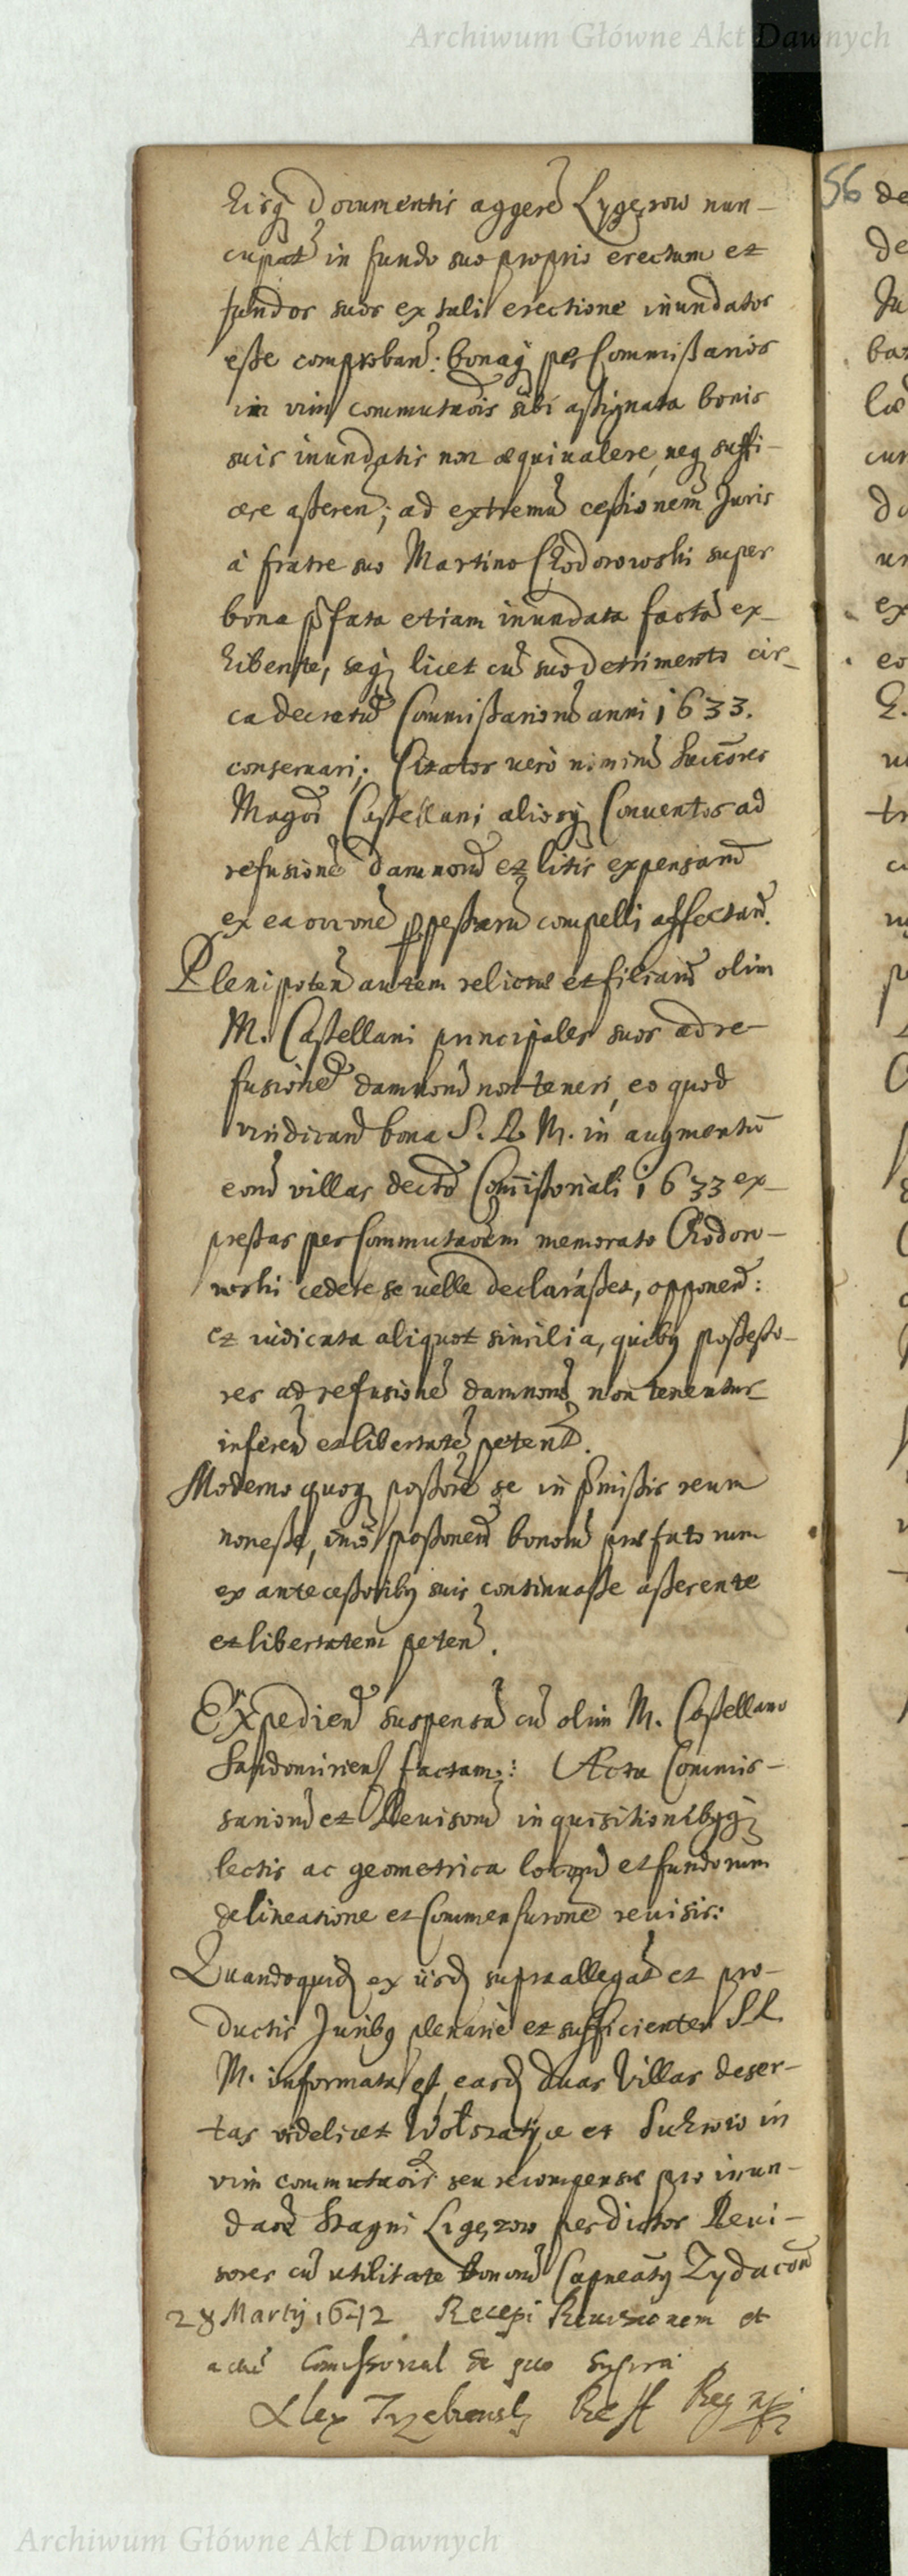 Archiwum Główne Akt Dawnych
Hisq documentis aggerē Lygęzow nun-
cupat in fundo suo proprio erectum et
fundos suos ex tali erectione inundatos
eße comproban: bonaq per Commißarios
in vim commutaōis sibi aßignata bonis
suis inundatis non æquiualere, neq suffi-
cere aßeren; ad extremū ceßionem Juris
à fratre suo Martino Chodorowski super
bona p̄fata etiam inundata factā ex-
hibente, seq licet cū suo detrimento cir-
ca decretū Commißariorū anni 1633.
conseruari; Citatos verò nimirū Succōres
Magci Castellani aliosq Conuentos ad
refusionē damnorū et litis expensarū
ex ea occonē ꝑpeßarū compelli affectan.
Plenipoten autem relictæ et filiarū olim
M. Castellani principales suos ad re-
fusionē damnorū non teneri, eo quod
vindican bona S. R. M. in augmentū
eorū villas decto Com̄ißoriali 1633 ex-
preßas per Commutaōem memorato Chodoro-
wski cedere se uelle declaraßet, opponen:
et iudicata aliquot similia, quibq poßeßo-
res ad refusionē damnorū non tenentur
inferen et libertatē peten.
Moderno quoq poßore se in p̄mißis reum
non eße, imo poßonem bonorū præfatorum
ex anteceßoribq suis continuaße aßerente
et libertatem peten.
Expedien suspensā cū olim M. Castellano
Sandomirien factam: Acta Commis-
sariorū et Reuisorū inquisitionibqq
lectis ac geometrica locorū et fundorum
delineatione et Commensuronē reuisis:
Quandoquid ex iisd supraallegat et pro-
ductis Juribq plenarie et sufficienter S. R.
M. informata est, easd duas Villas deser-
tas videlicet Wołszatÿce et Suchrow in
vim commutaōis seu recompensæ pro inun-
daōe Stagni Ligęzow per dictos Reui-
sores cū utilitate bonorū Capneatq Zydacou
28 Martij 1642 Recepi Reuisionem et
actū Comissorial de quo supra
Alex Trzebensky
56